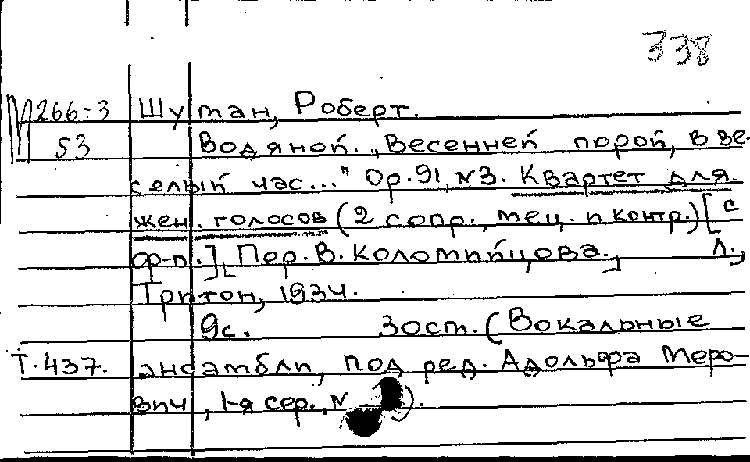 338
М 266-3 Шуман, Роберт.
53 Водяной. „Весенней порой, в ве-
селый час..." Op. 91, №3. Квартет для
жен. голосов (2 сопр., мец. и контр.) [с
ф-п.] [Пер. В. Коломийцова.] Л.,
Тритон, 1934.
9с. 30ст. (Вокальные
Т.437. ансамбли, под ред. Адольфа Меро-
вич, 1-я сер., №